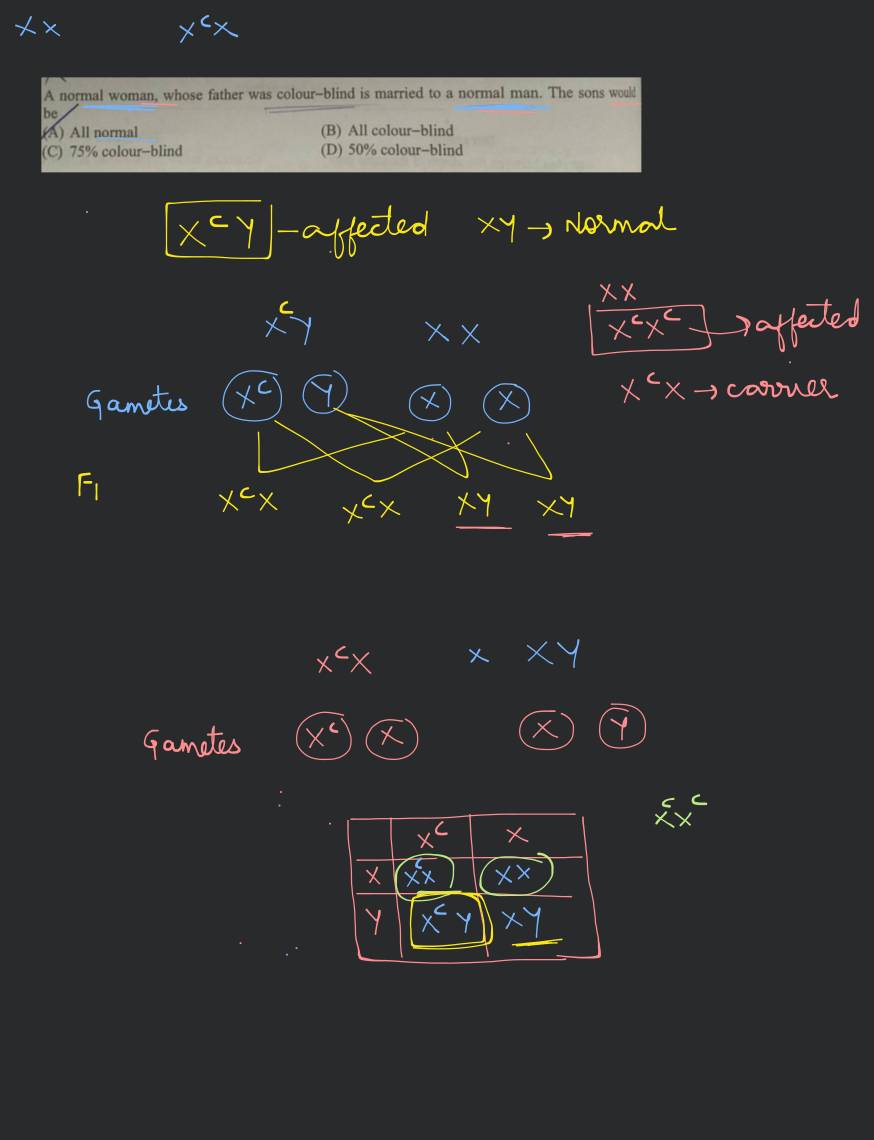 XX X^C X
A normal woman, whose father was colour–blind is married to a normal man. The sons would
be
(A) All normal (B) All colour–blind
(C) 75% colour–blind (D) 50% colour–blind
X^C Y – affected XY → Normal
XX
X^C X^C → affected
X^C Y XX
X^C X → carrier
Gametes X^C Y X X
F1 X^C X X^C X XY XY
X^C X x XY
Gametes X^C X X Y
X^C X^C
X^C X
X X^C X XX
Y X^C Y XY